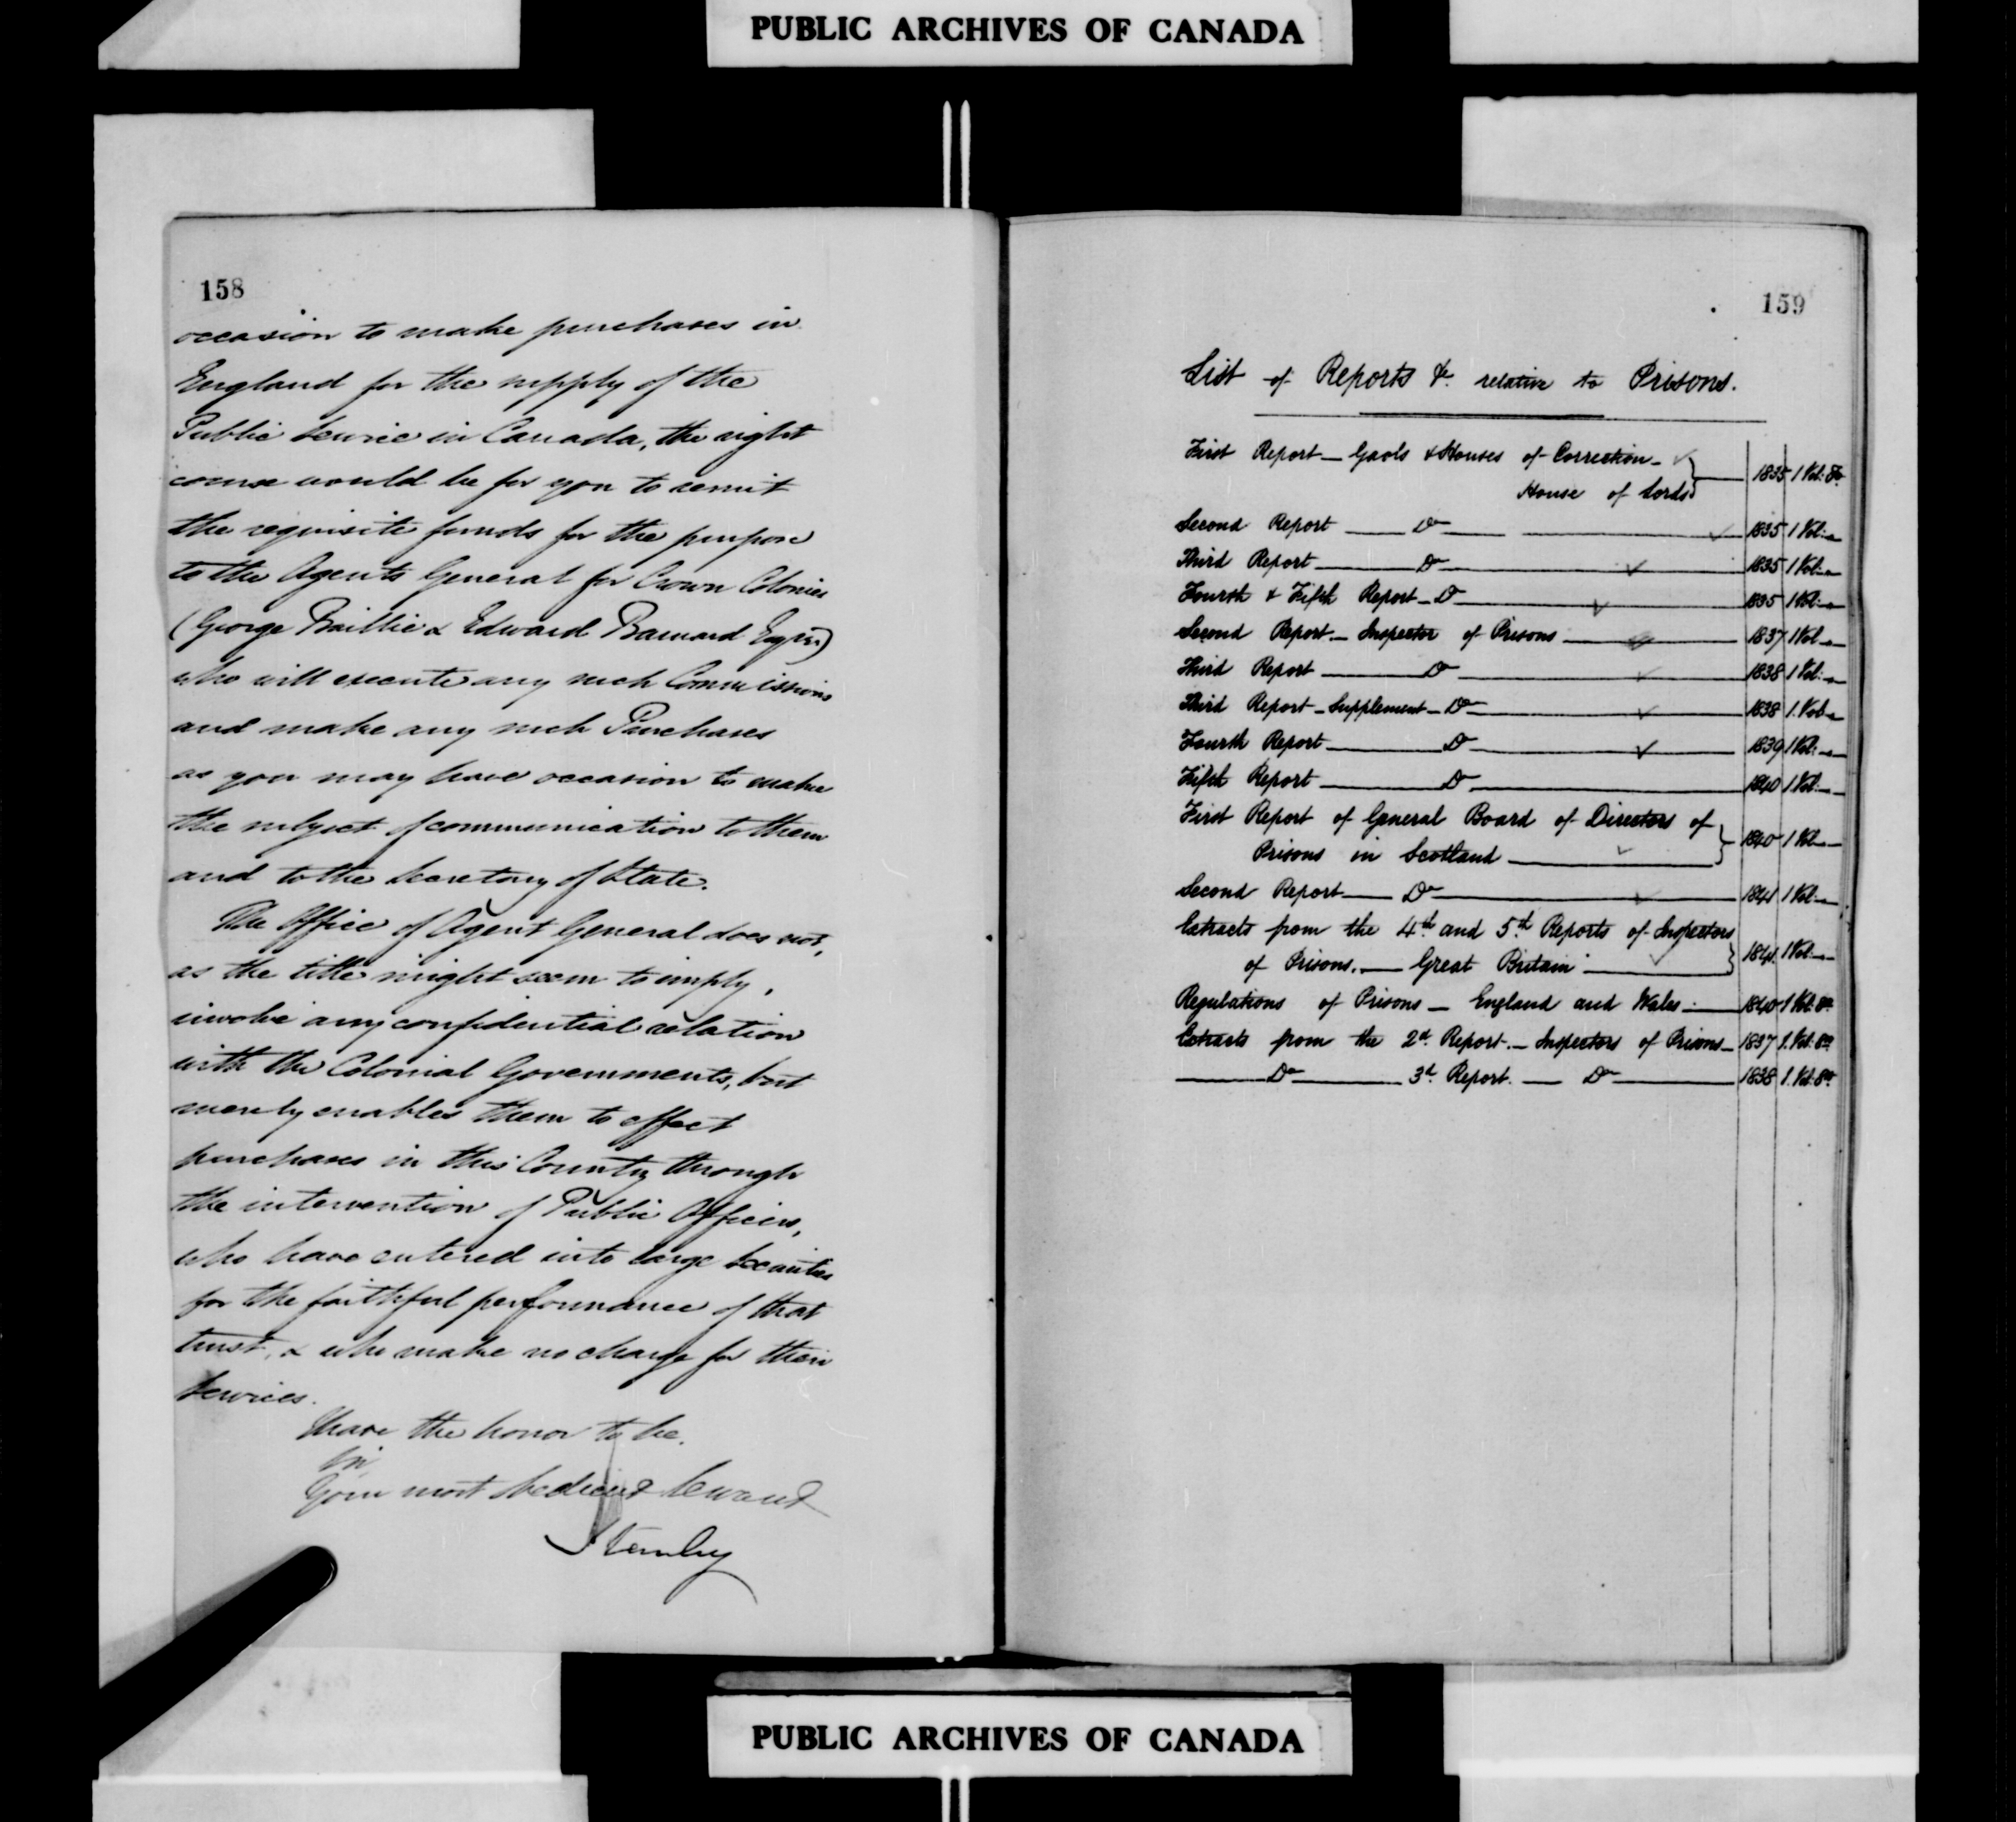 PUBLIC ARCHIVES OF CANADA
158
occasion to make purchases in
England for the supply of the
Public Service in Canada, the right
course would be for you to remit
the requisite funds for the purpose
to the Agents General for Crown Colonies
(George Baillie & Edward Barnard Esqrs.)
who will execute any such Commissions
and make any such Purchases
as you may have occasion to make
the subject of communication to them
and to the Secretary of State.
The Office of Agent General does not,
as the title might seem to imply,
involve any confidential relation
with the Colonial Governments, but
merely enables them to effect
purchases in this Country through
the intervention of Public Officers,
who have entered into large Securities
for the faithful performance of that
trust, & who make no charge for their
Services.
I have the honor to be,
Sir,
Your most obedient Servant
Stanley
159
List of Reports &c. relative to Prisons.
First Report — Gaols & Houses of Correction — 1835 1 Vol: Fo.
House of Lords
Second Report — Do — 1835 1 Vol: —
Third Report — Do — 1835 1 Vol: —
Fourth & Fifth Report — Do — 1835 1 Vol: —
Second Report. — Inspector of Prisons — 1837 1 Vol —
Third Report — Do — 1838 1 Vol: —
Third Report — Supplement — Do — 1838 1. Vol —
Fourth Report — Do — 1839 1 Vol: —
Fifth Report — Do — 1840 1 Vol: —
First Report of General Board of Directors of
Prisons in Scotland — 1840 1 Vol —
Second Report — Do — 1841 1 Vol: —
Extracts from the 4th and 5th Reports of Inspectors
of Prisons. — Great Britain — 1841. 1 Vol: —
Regulations of Prisons — England and Wales — 1840 1 Vol. 8o
Extracts from the 2d. Report. — Inspectors of Prisons — 1837 1. Vol. 8o
— Do — 3d. Report. — Do — 1838 1. Vol. 8o
PUBLIC ARCHIVES OF CANADA